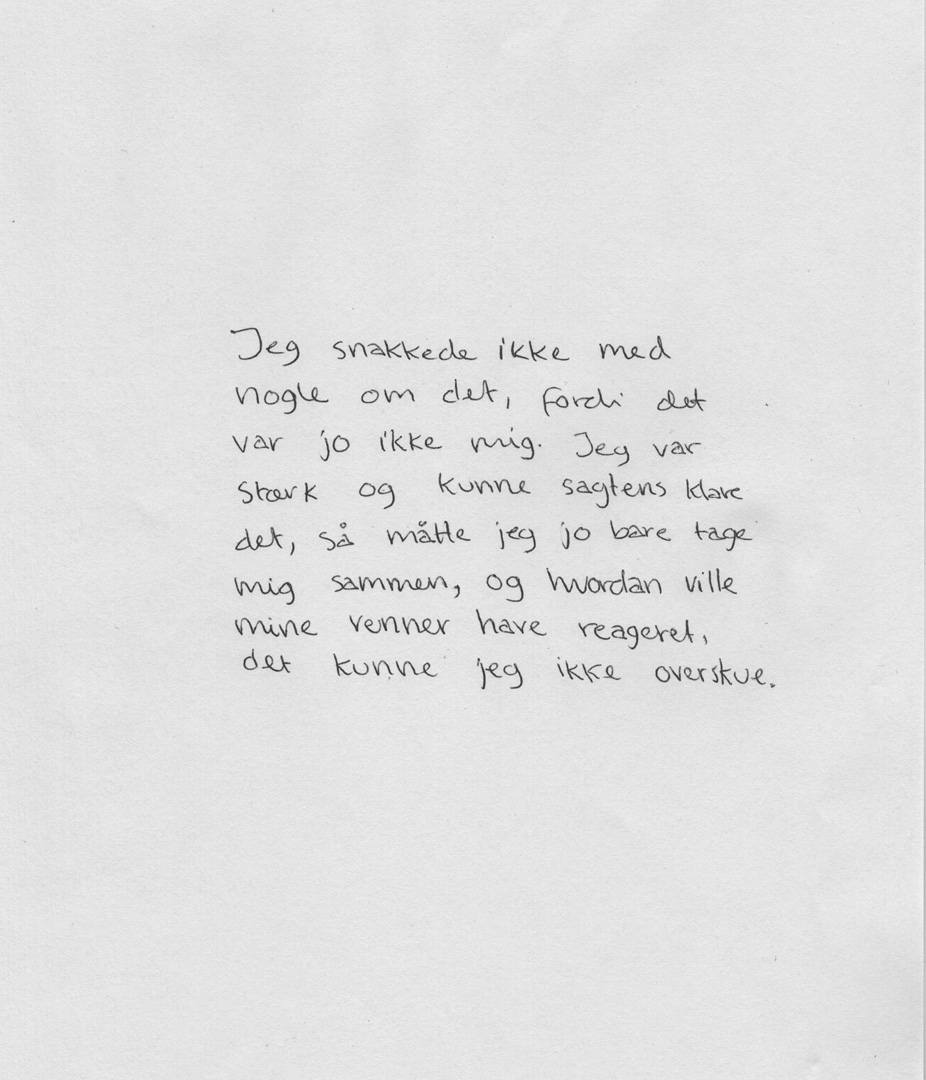 Jeg snakkede ikke med
nogle om det, fordi det
var jo ikke mig. Jeg var
stærk og kunne sagtens klare
det, så måtte jeg jo bare tage
mig sammen, og hvordan ville
mine venner have reageret,
det kunne jeg ikke overskue.